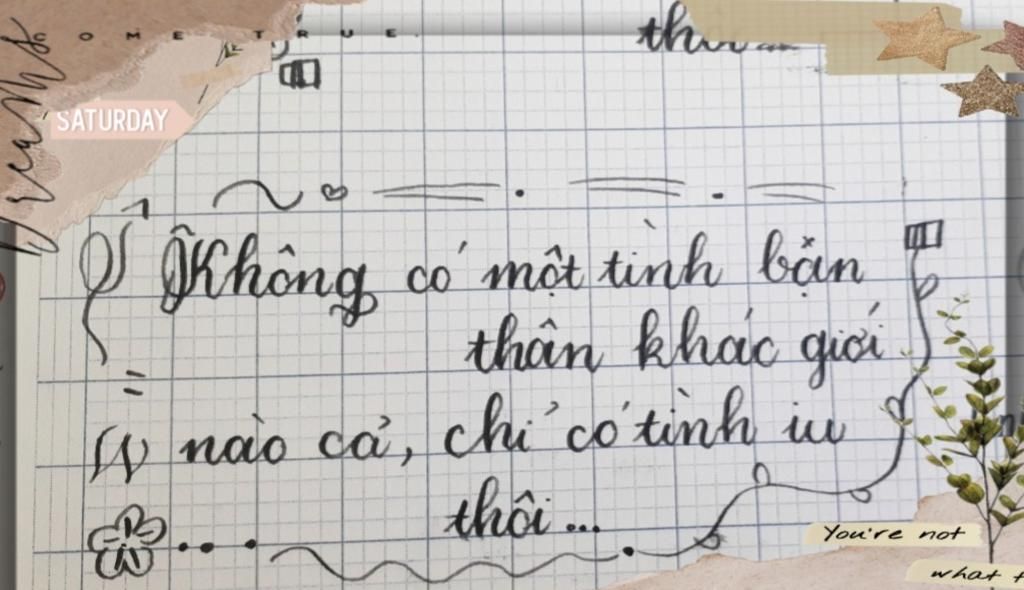 Dreams
COME TRUE.
SATURDAY
Không có một tình bạn
thân khác giới
nào cả, chỉ có tình iu
thôi...
You're not
what